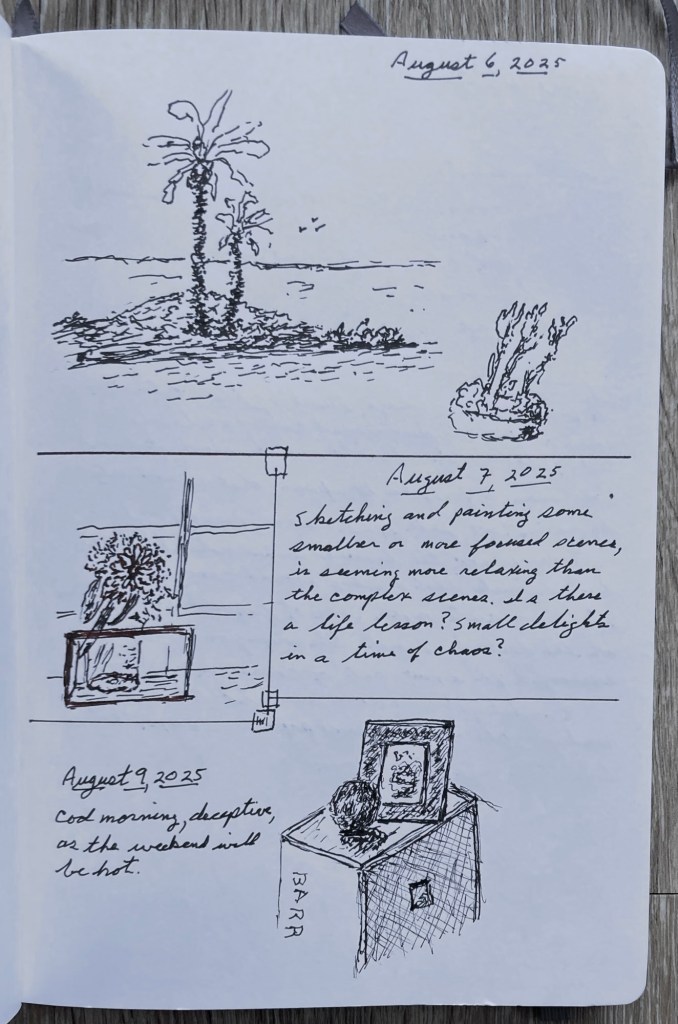 August 6, 2025
August 7, 2025
Sketching and painting some
smaller or more focused scenes,
is seeming more relaxing than
the complex scenes. Is there
a life lesson? Small delights
in a time of chaos?
August 9, 2025
Cool morning, deceptive,
as the weekend will
be hot.
BARR